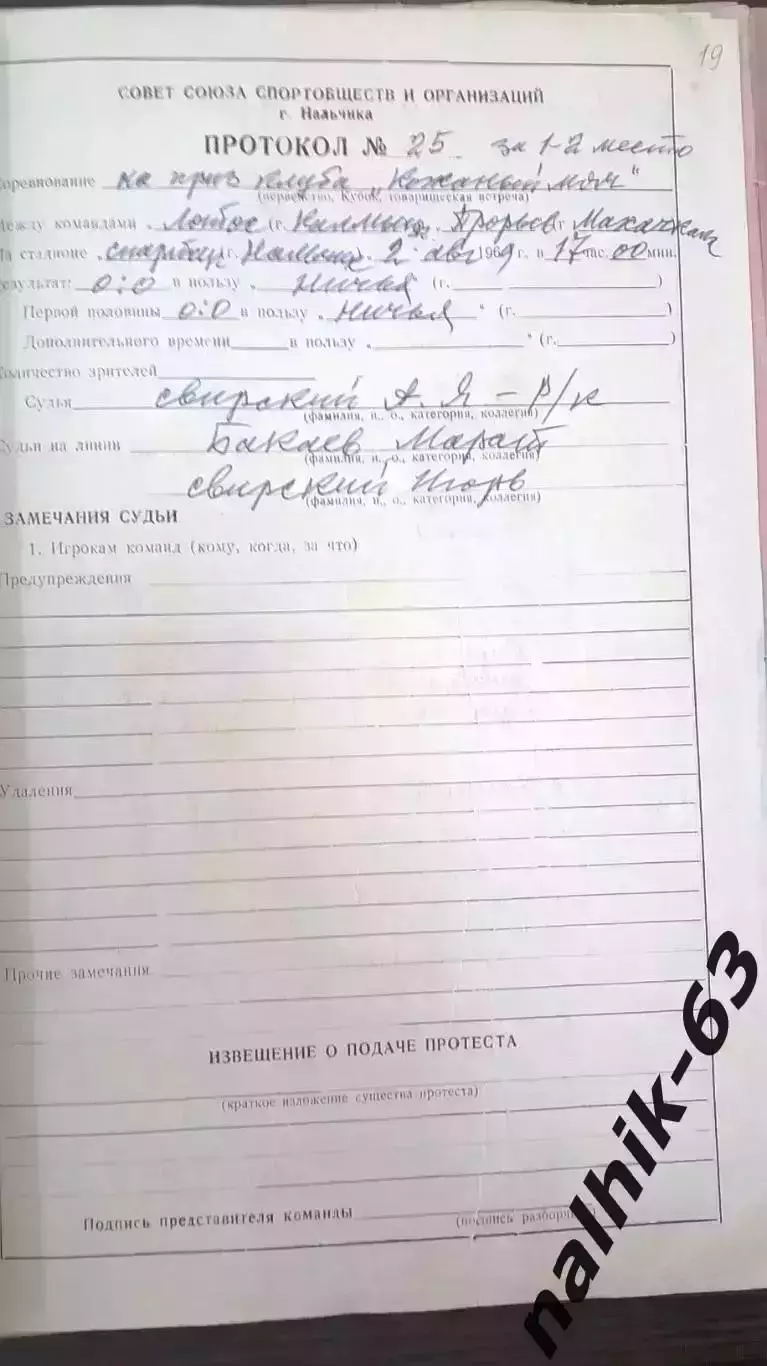 19
СОВЕТ СОЮЗА СПОРТОБЩЕСТВ И ОРГАНИЗАЦИЙ
г. Нальчика
ПРОТОКОЛ № 25 за 1-2 место
Соревнование на приз клуба „Кожаный мяч“
(первенство, Кубок, товарищеская встреча)
Между командами „ (г. „Прорыв г
На стадионе „Спартак г. 2 авг 1969 г. в 17 час. 00 мин.
результат: 0:0 в пользу „ ничья (г. )
Первой половины 0:0 в пользу „ ничья “ (г. )
Дополнительного времени в пользу „ “ (г. )
Количество зрителей
Судья Свирский А. Я – Р/к
(фамилия, и., о., категория, коллегия)
Судьи на линии Бакаев Марат
(фамилия, и., о., категория, коллегия)
Свирский Игорь
(фамилия, и., о., категория, коллегия)
ЗАМЕЧАНИЯ СУДЬИ
1. Игрокам команд (кому, когда, за что)
Предупреждения
Удаления
Прочие замечания
ИЗВЕЩЕНИЕ О ПОДАЧЕ ПРОТЕСТА
(краткое изложение существа протеста)
Подпись представителя команды
(подпись разборчиво)
nalhik-63